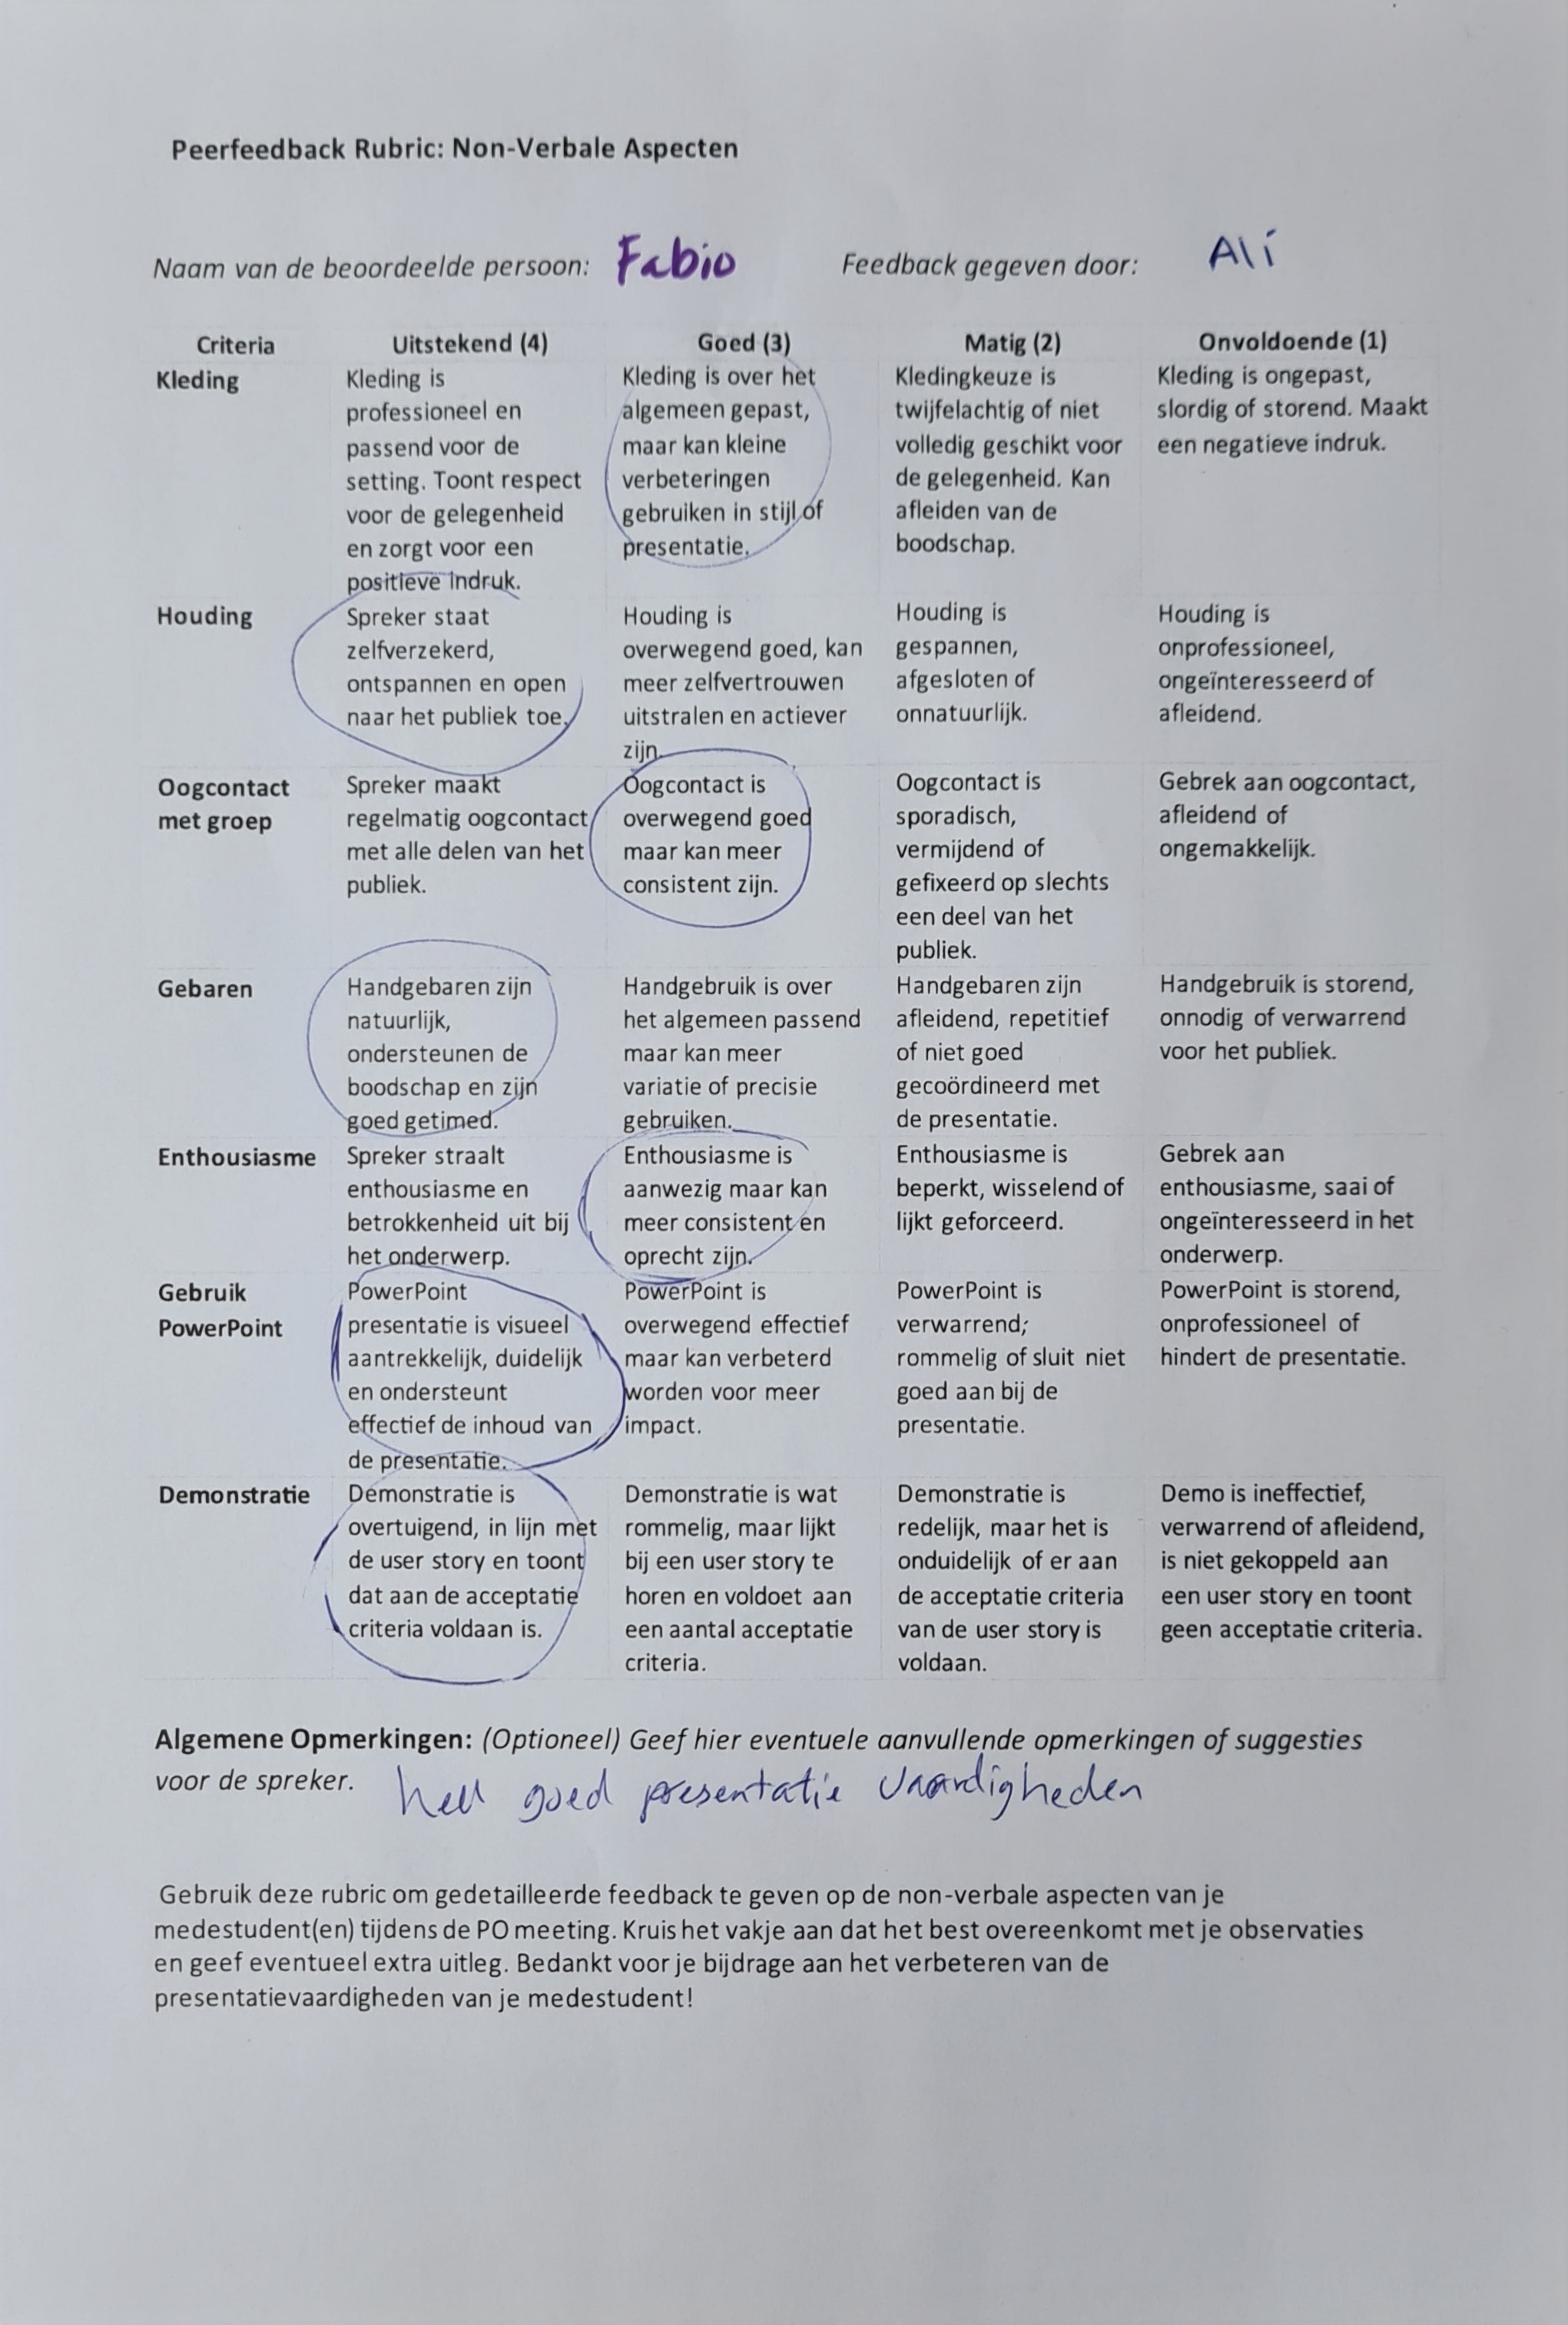 Peerfeedback Rubric: Non-Verbale Aspecten
Naam van de beoordeelde persoon: Fabio Feedback gegeven door: Ali
Criteria Uitstekend (4) Goed (3) Matig (2) Onvoldoende (1)
Kleding
Kleding is
professioneel en
passend voor de
setting. Toont respect
voor de gelegenheid
en zorgt voor een
positieve indruk.
Kleding is over het
algemeen gepast,
maar kan kleine
verbeteringen
gebruiken in stijl of
presentatie.
Kledingkeuze is
twijfelachtig of niet
volledig geschikt voor
de gelegenheid. Kan
afleiden van de
boodschap.
Kleding is ongepast,
slordig of storend. Maakt
een negatieve indruk.
Houding
Spreker staat
zelfverzekerd,
ontspannen en open
naar het publiek toe.
Houding is
overwegend goed, kan
meer zelfvertrouwen
uitstralen en actiever
zijn.
Houding is
gespannen,
afgesloten of
onnatuurlijk.
Houding is
onprofessioneel,
ongeïnteresseerd of
afleidend.
Oogcontact
met groep
Spreker maakt
regelmatig oogcontact
met alle delen van het
publiek.
Oogcontact is
overwegend goed
maar kan meer
consistent zijn.
Oogcontact is
sporadisch,
vermijdend of
gefixeerd op slechts
een deel van het
publiek.
Gebrek aan oogcontact,
afleidend of
ongemakkelijk.
Gebaren
Handgebaren zijn
natuurlijk,
ondersteunen de
boodschap en zijn
goed getimed.
Handgebruik is over
het algemeen passend
maar kan meer
variatie of precisie
gebruiken.
Handgebaren zijn
afleidend, repetitief
of niet goed
gecoördineerd met
de presentatie.
Handgebruik is storend,
onnodig of verwarrend
voor het publiek.
Enthousiasme
Spreker straalt
enthousiasme en
betrokkenheid uit bij
het onderwerp.
Enthousiasme is
aanwezig maar kan
meer consistent en
oprecht zijn.
Enthousiasme is
beperkt, wisselend of
lijkt geforceerd.
Gebrek aan
enthousiasme, saai of
ongeïnteresseerd in het
onderwerp.
Gebruik
PowerPoint
PowerPoint
presentatie is visueel
aantrekkelijk, duidelijk
en ondersteunt
effectief de inhoud van
de presentatie.
PowerPoint is
overwegend effectief
maar kan verbeterd
worden voor meer
impact.
PowerPoint is
verwarrend;
rommelig of sluit niet
goed aan bij de
presentatie.
PowerPoint is storend,
onprofessioneel of
hindert de presentatie.
Demonstratie
Demonstratie is
overtuigend, in lijn met
de user story en toont
dat aan de acceptatie
criteria voldaan is.
Demonstratie is wat
rommelig, maar lijkt
bij een user story te
horen en voldoet aan
een aantal acceptatie
criteria.
Demonstratie is
redelijk, maar het is
onduidelijk of er aan
de acceptatie criteria
van de user story is
voldaan.
Demo is ineffectief,
verwarrend of afleidend,
is niet gekoppeld aan
een user story en toont
geen acceptatie criteria.
Algemene Opmerkingen: (Optioneel) Geef hier eventuele aanvullende opmerkingen of suggesties
voor de spreker. heel goed presentatie vaardigheden
Gebruik deze rubric om gedetailleerde feedback te geven op de non-verbale aspecten van je
medestudent(en) tijdens de PO meeting. Kruis het vakje aan dat het best overeenkomt met je observaties
en geef eventueel extra uitleg. Bedankt voor je bijdrage aan het verbeteren van de
presentatievaardigheden van je medestudent!